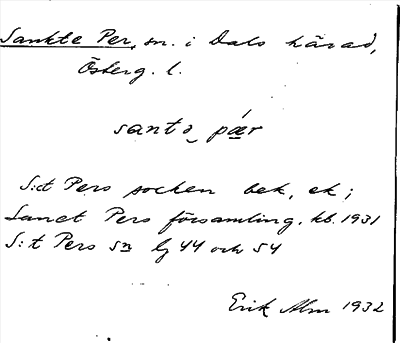 Sankte Per, sn. i Dals härad,
Österg. l.
santə pǽr
S:ct Pers socken bek, ek;
Sanct Pers församling, kb. 1931
S:t Pers sn lj 44 och 54
Erik Alm 1932